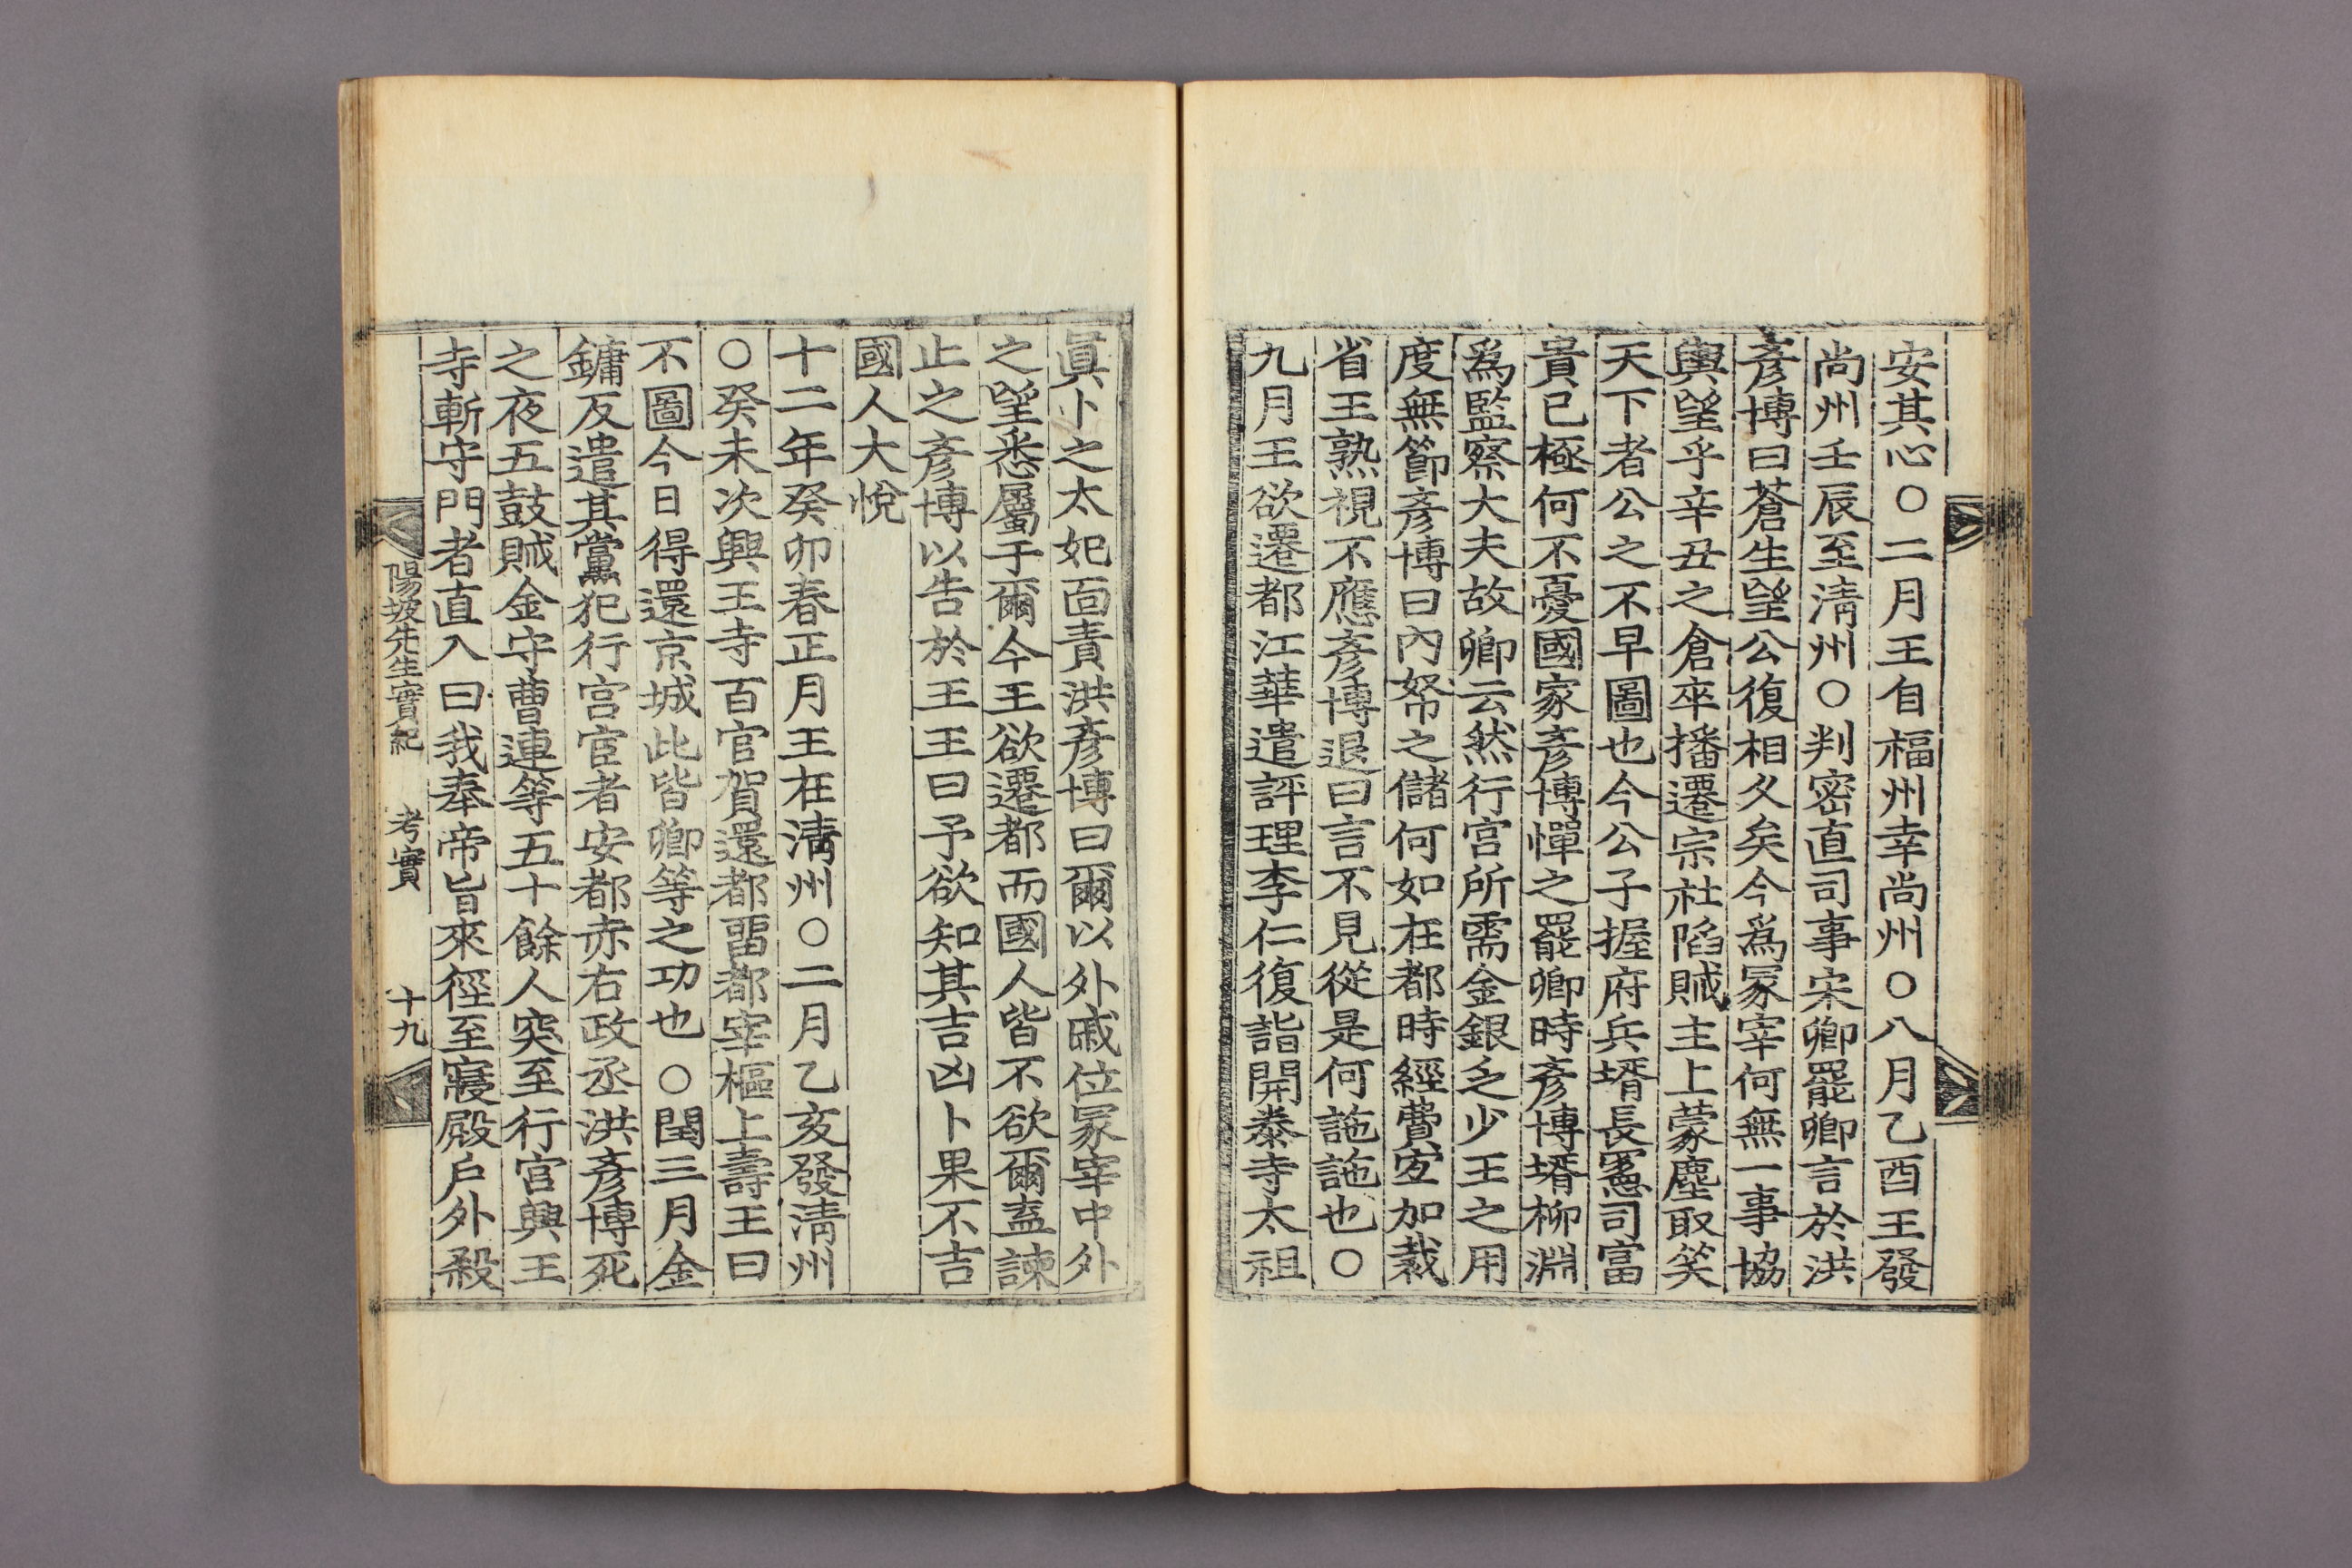 安其心○二月王自福州幸尚州○八月乙酉王發
尚州壬辰至淸州○判密直司事宋卿罷卿言於洪
彦博曰蒼生望公復相久矣今爲冢宰何無一事協
輿望乎辛丑之倉卒播遷宗社陷賊主上蒙塵取笑
天下者公之不早圖也今公子握府兵壻長憲司富
貴已極何不憂國家彦博憚之罷卿時彦博壻柳淵
爲監察大夫故卿云然行宮所需金銀乏少王之用
度無節彦博曰內帑之儲何如在都時經費宜加裁
省王熟視不應彦博退曰言不見從是何訑訑也○
九月王欲遷都江華遣評理李仁復詣開泰寺太祖
眞卜之太妃面責洪彦博曰爾以外戚位冢宰中外
之望悉屬于爾今王欲遷都而國人皆不欲爾盍諫
止之彦博以告於王王曰予欲知其吉凶卜果不吉
國人大悅
十二年癸卯春正月王在淸州○二月乙亥發淸州
○癸未次興王寺百官賀還都留都宰樞上壽王曰
不圖今日得還京城此皆卿等之功也○閏三月金
鏞反遣其黨犯行宮宦者安都赤右政丞洪彦博死
之夜五鼓賊金守曹連等五十餘人突至行宮興王
寺斬守門者直入曰我奉帝旨來徑至寢殿戶外殺
陽坡先生實紀 考實 十九